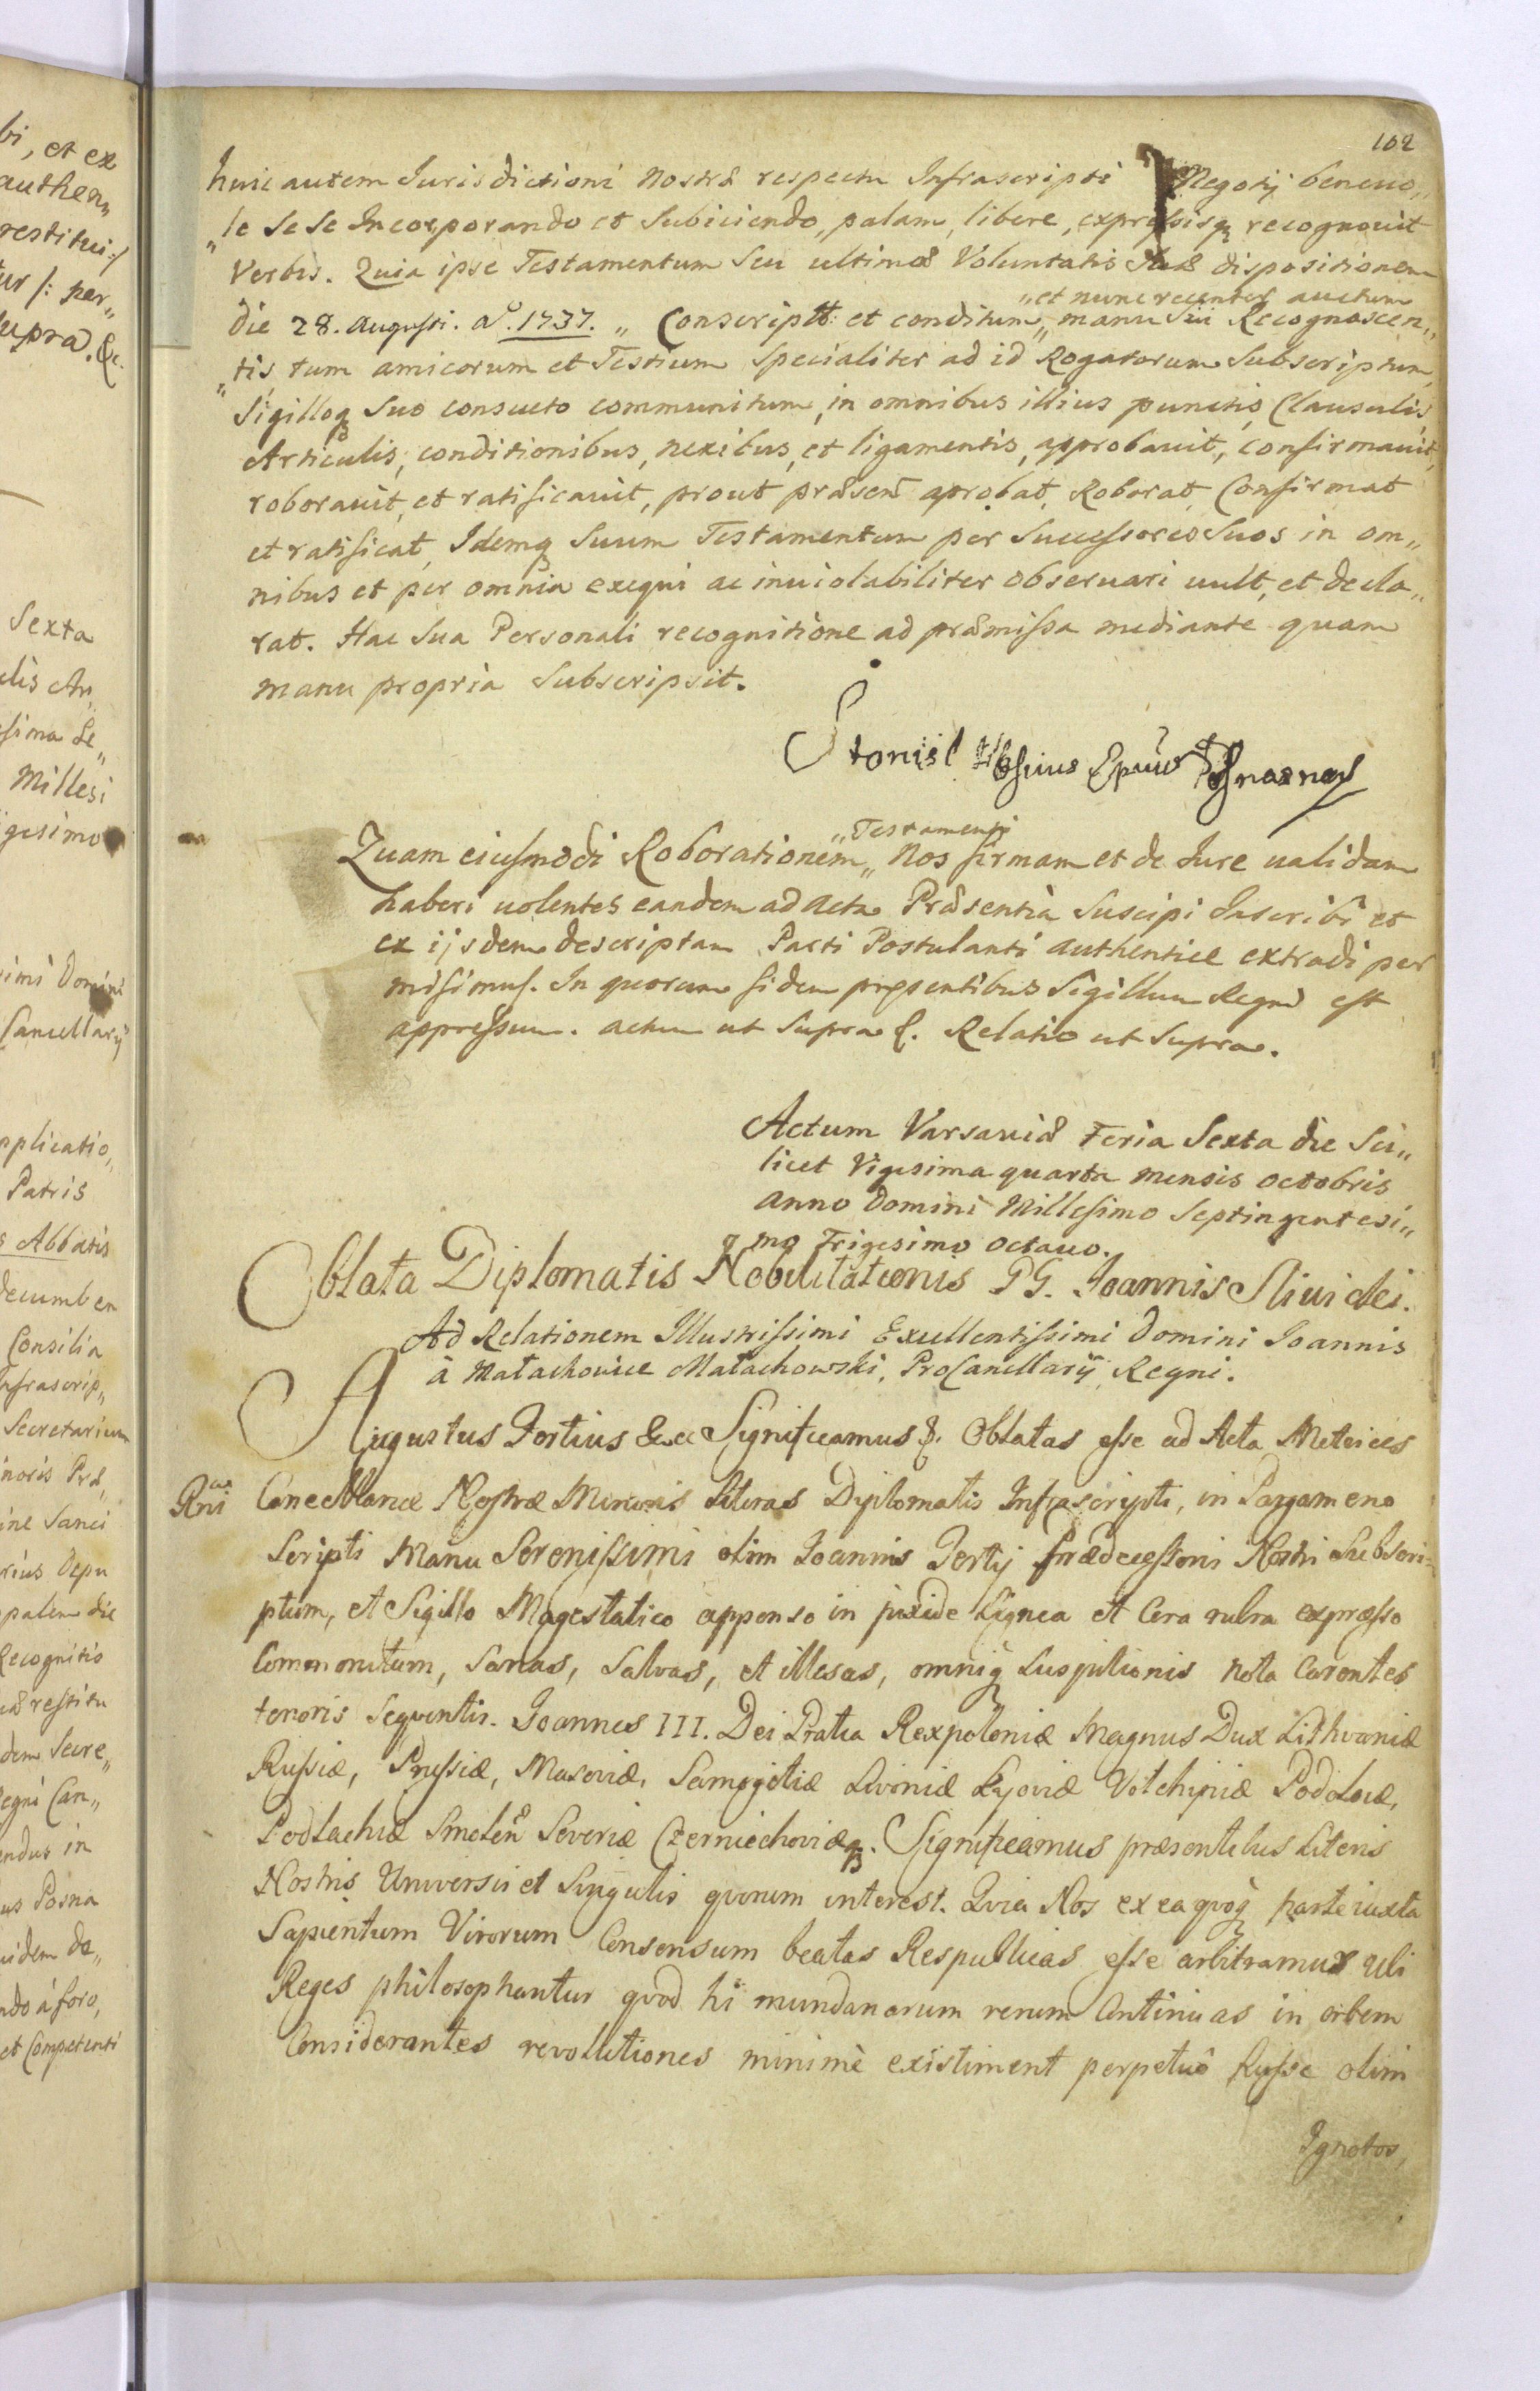 102
huic autem Jurisdictioni Nostræ respectu Infrascripti Negotij beneuo„
„le Se Se Incorporando et Subiiciendo, palam, libere, expressisq recognouit
Verbis. Quia ipse Testamentum Seu ultimæ Voluntatis Suæ dispositionem
„et nunc recenter auctum
die 28. Augusti. a⁰. 1737. „ Conscriptũ et conditum„ manu Sui Recognoscen„
„tis, tum amicorum et Testium Specialiter ad id Rogatorum Subscriptum,
Sigilloq Suo consueto communitum, in omnibus illius punctis, Clausulis,
Articulis, conditionibus, nexibus, et ligamentis, approbauit, confirmauit,
roborauit, et ratificauit, prout præsen̄ aprobat, Roborat, Confirmat
et ratificat, Idemq Suum Testamentum per Successores Suos in om„
nibus et per omnia exequi ac inuiolabiliter obseruari uult, et decla„
rat. Hac Sua Personali recognitione ad præmissa mediante quam
manu propria Subscripsit.
Stanisl Hosius Eṕus Posnanẏ
„Testamenti
Quam eiusmodi Roborationem„ Nos firmam et de Jure ualidam
haberi uolentes eandem ad Acta Præsentia Suscipi Inscribi et
ex ijsdem descriptam Parti Postulanti authentice extradi per
misimus. In quorum fidem præsentibus Sigillum Regni est
appressum. actum ut Supra &. Relatio ut Supra.
Actum Varsauiæ Feria Sexta die Sci„
licet Vigesima quarta mensis octobris
anno Domini Millesimo Septingentesi„
mo Trigesimo octauo.
Oblata Diplomatis Nobilitationis PG. Joannis Sliuicki.
Ad Relationem Illustrissimi Excellentissimi Domini Joannis
à Małachowice Małachowski, ProCancellarij Regni.
Augustus Tertius &cc Significamus &. Oblatas esse ad Acta Metrices
Rni
Cancellariæ Nostræ Minoris literas Dyplomatis Infrascripti, in Pargameno
Scripti Manu Serenissimi olim Joannis Tertij Prædecessoris Nostri Subscri-
ptum, et Sigillo Magestatico appenso in pixide Lignea et Cera rubra expresso
Communitum, Sanas, Salvas, et illesas, omniq Suspitionis nota Carentes
tenoris Sequentis. Joannes III. Dei Gratia Rex poloniæ Magnus Dux Lithvaniæ
Russiæ, Prussiæ, Masoviæ, Samogitiæ Livoniæ Kyoviæ Volchyniæ Podoliæ,
Podlachiæ Smolen̄ Severiæ Czerniechoviæq. Significamus præsentibus Literis
Nostris Universis et Singulis quorum interest. Qvia Nos ex ea qvoq parte iuxta
Sapientum Virorum Consensum beatas Respublicas esse arbitramur ubi
Reges philosophantur qvod hi mundanarum rerum Continuas in orbem
Considerantes revolutiones minimè existiment perpetuò fuisse olim
Ignotos,
bi, et ex
authen„
restitui:/
tur /: per„
Supra. &c.
Sexta
Millesi
gesimo
Cancellarij
pplicatio„
Patris
Abbatis
decumben
Consilia
Infrascrip„
Secretarium
noris Præ,
ine Sanci
rius Depu
palem die
Recognitio
restitu
dem Secre„
egni Can„
endus in
us Posna
uidem de„
ndo à foro,
et Competenti